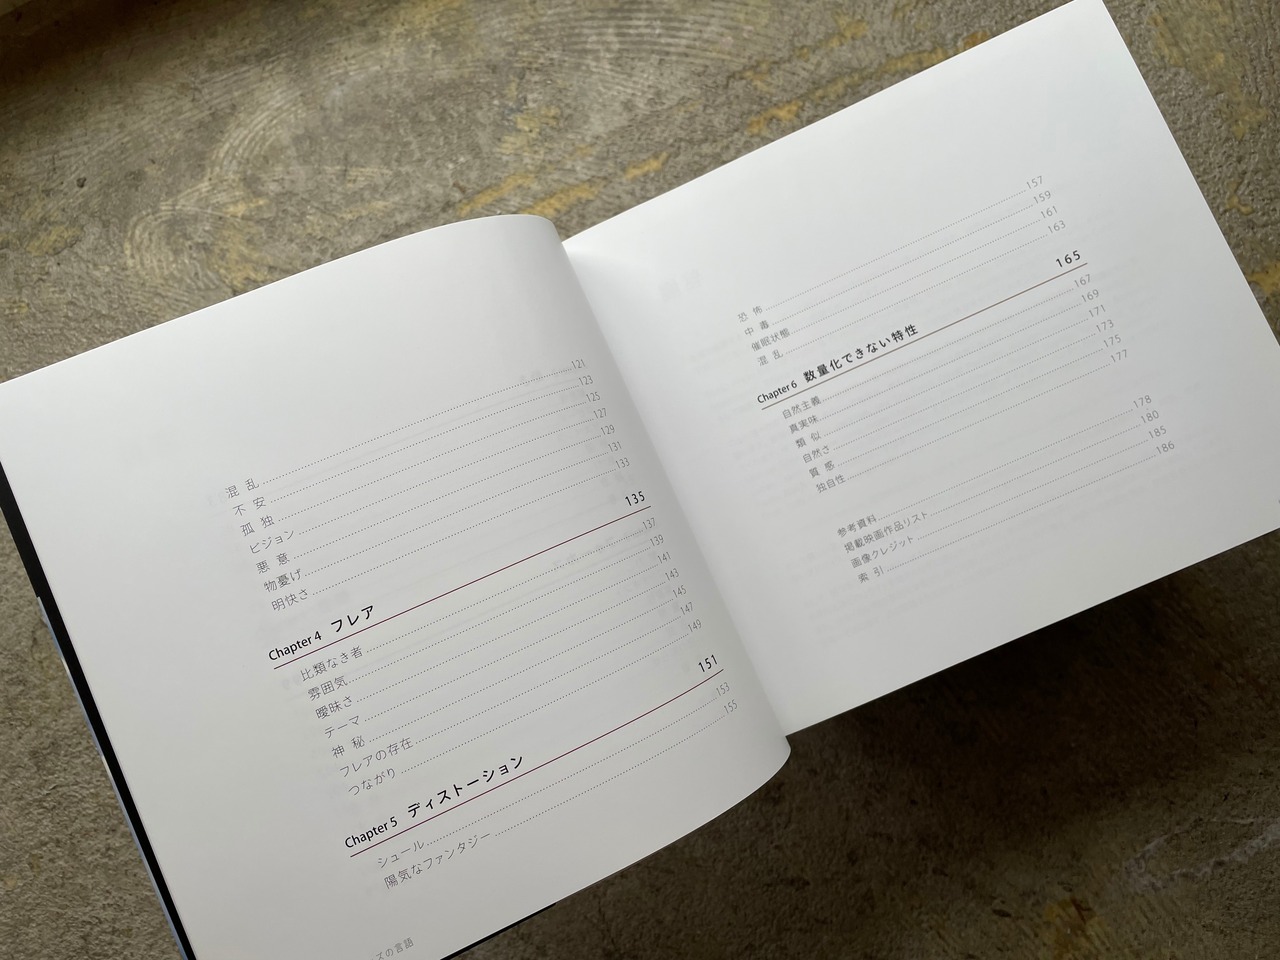 混 乱 121
不 安 123
孤 独 125
ビジョン 127
悪 意 129
物憂げ 131
明快さ 133
Chapter 4 フレア 135
比類なき者 137
雰囲気 139
曖昧さ 141
テーマ 143
神 秘 145
フレアの存在 147
つながり 149
Chapter 5 ディストーション 151
シュール 153
陽気なファンタジー 155
ズの言語
恐 怖 157
中 毒 159
催眠状態 161
混 乱 163
Chapter 6 数量化できない特性 165
自然主義 167
真実味 169
類 似 171
自然さ 173
質 感 175
独自性 177
参考資料 178
掲載映画作品リスト 180
画像クレジット 185
索 引 186